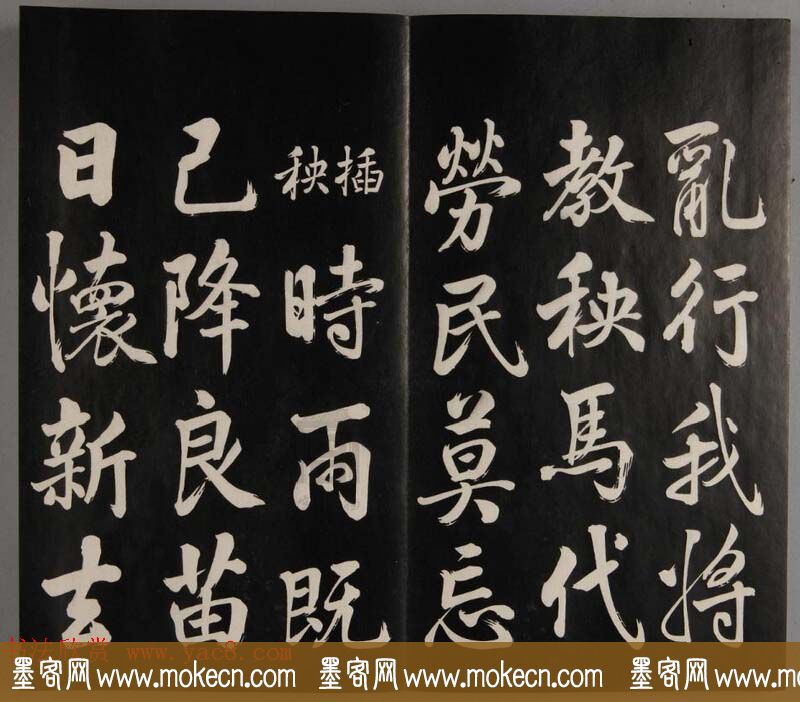 亂行我将
教秧馬代
勞民莫忘
插秧
時雨既
已降良苗
日懷新去
书法欣赏 www.yac8.com
墨客网 www.mokecn.com 墨客网 www.mokecn.com 墨客网 www.mokecn.com